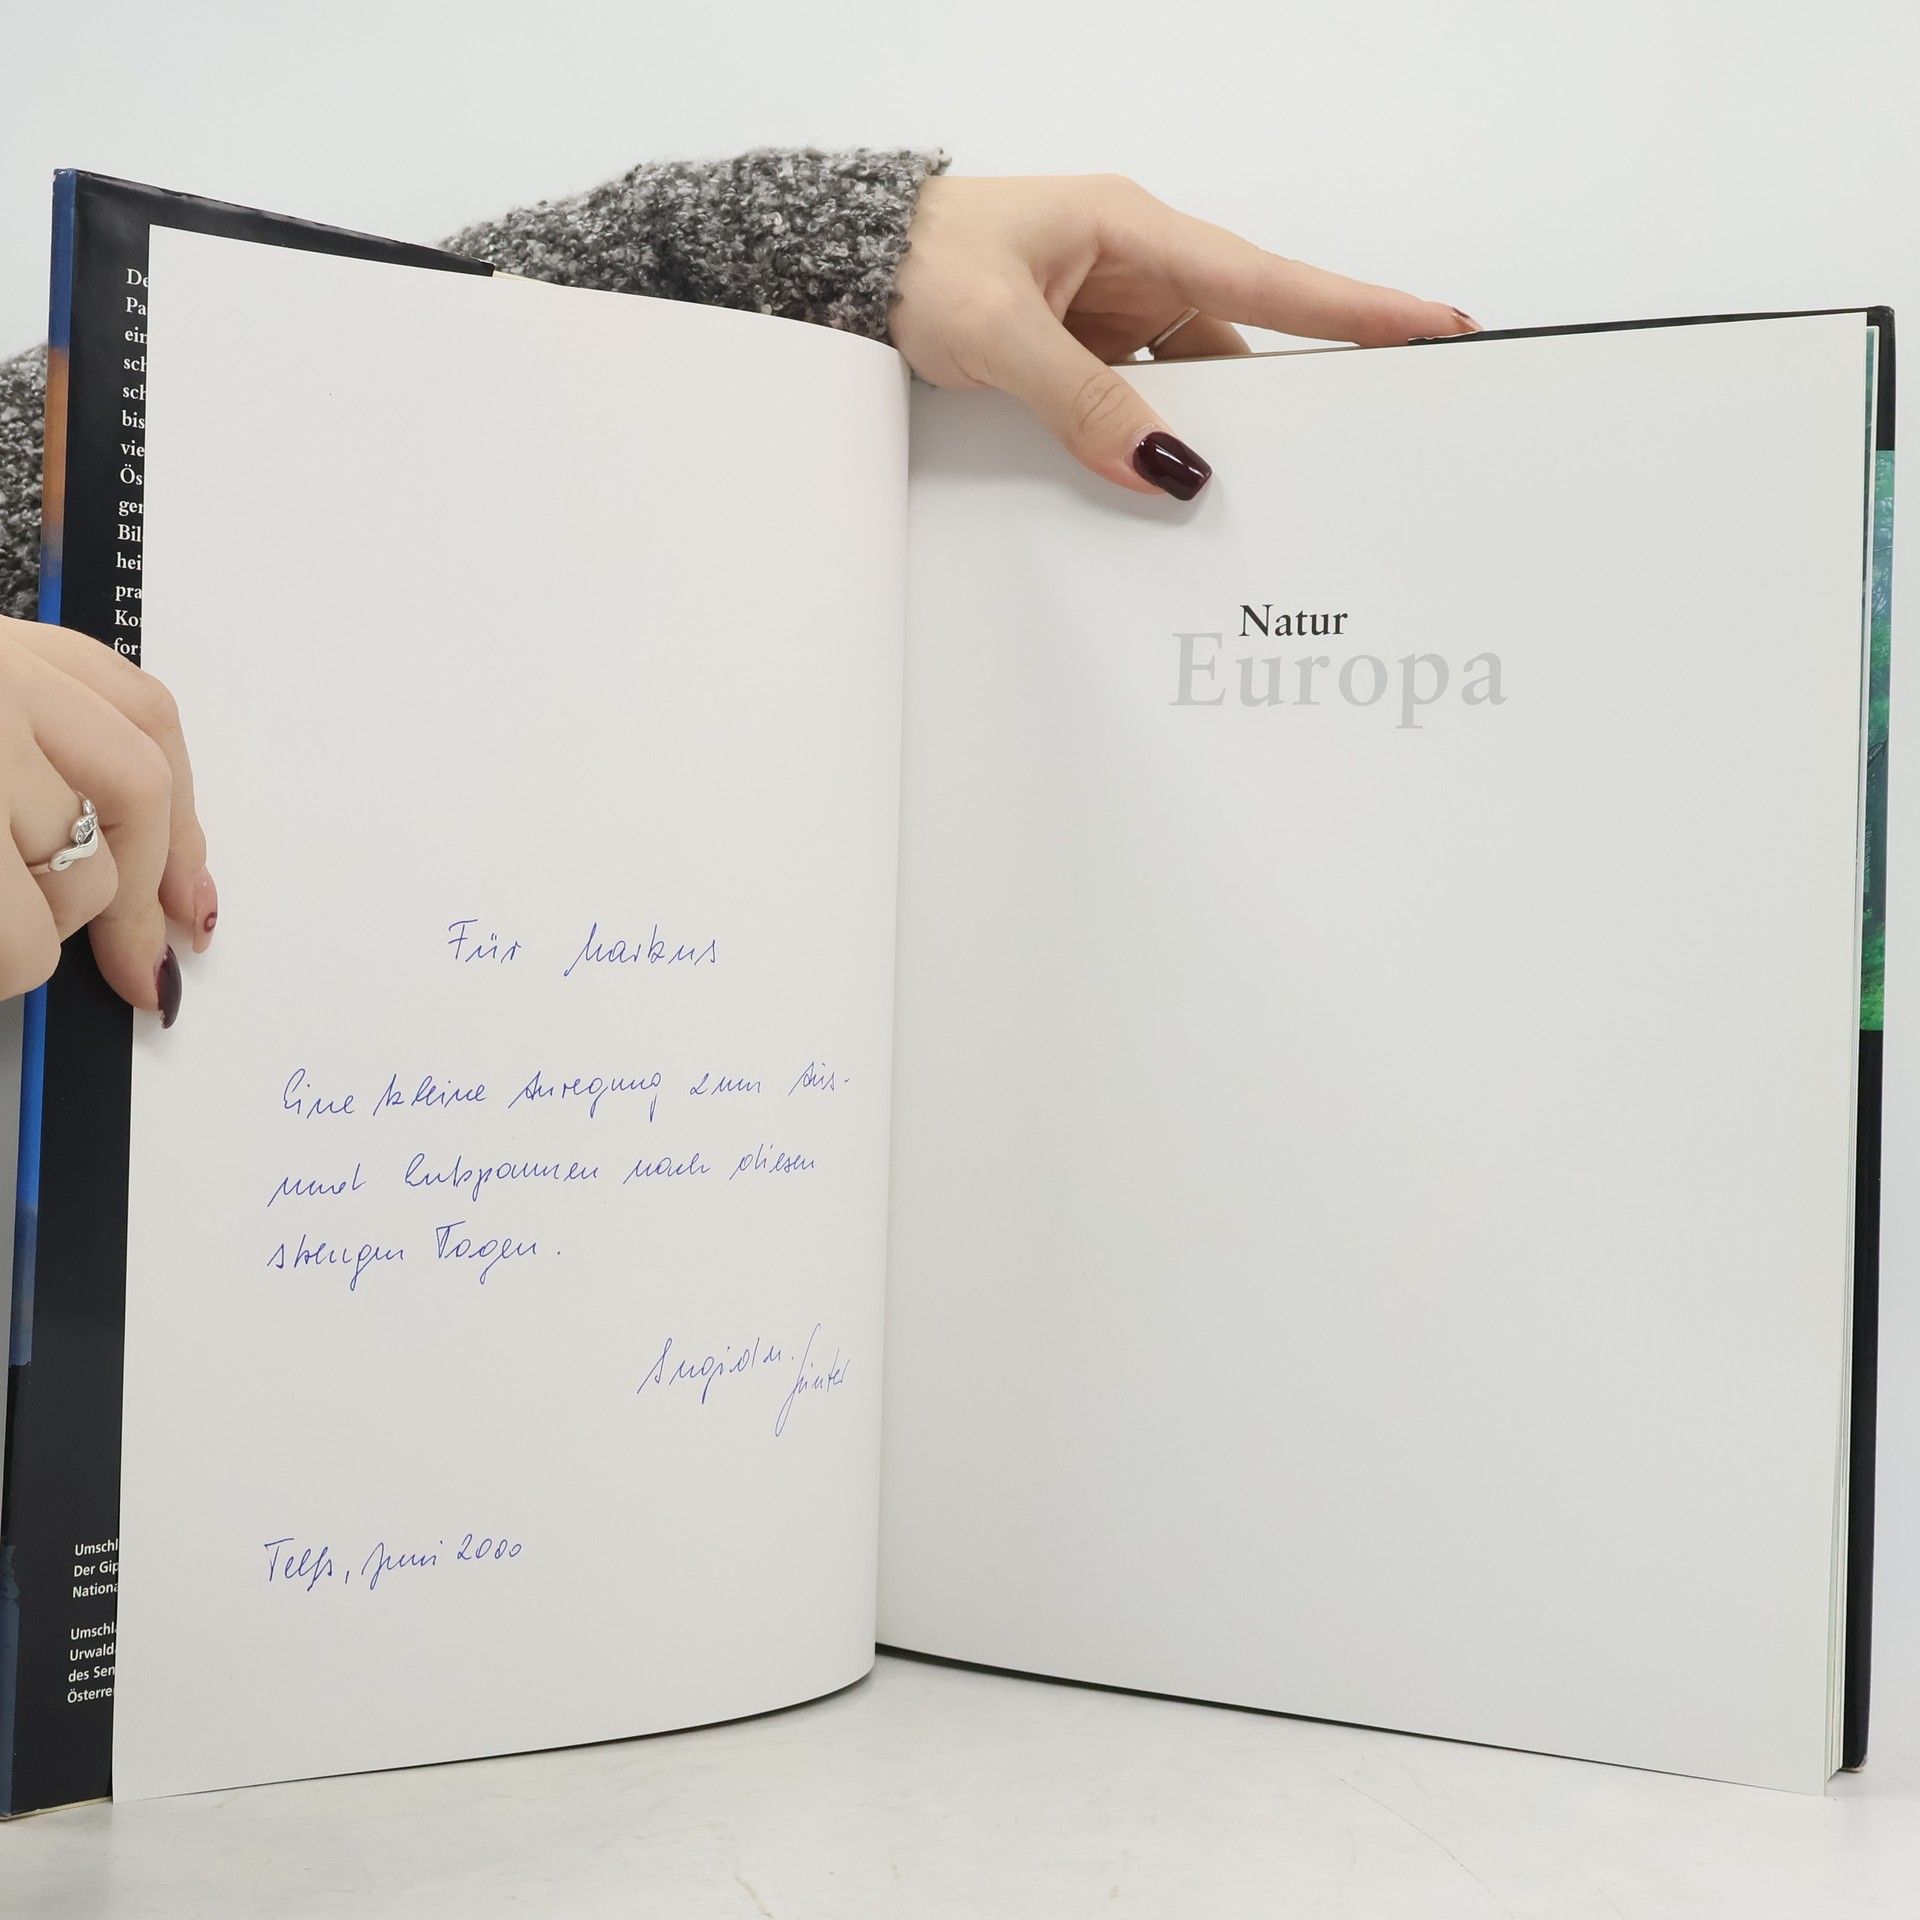 De
Pa
ein
sch
sch
bis
vie
Ös
ger
Bil
hei
pra
Kon
for
Umschl
Der Gip
Nationa
Umschla
Urwald
des Sen
Österre
Für Markus
Eine kleine Anregung zum Aus-
und Entspannen nach diesen
strengen Tagen.
Ingrid u.
Günter
Telfs, Juni 2000
Natur
Europa